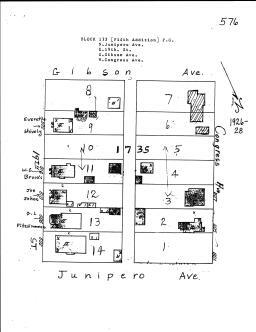 576
BLOCK 133 [Fifth Addition] P.G.
N.Junipero Ave.
E.19th. St.
S.Gibson Ave.
W.Congress Ave.
Gibson Ave.
8
7
1926-
28
Everett
Shively
9
6
Congress
10
1735
5
19th
11
4
W.F.
Brooks
Joe
Johns
12
3
D. L.
13
2
ST
14
1
Junipero Ave.